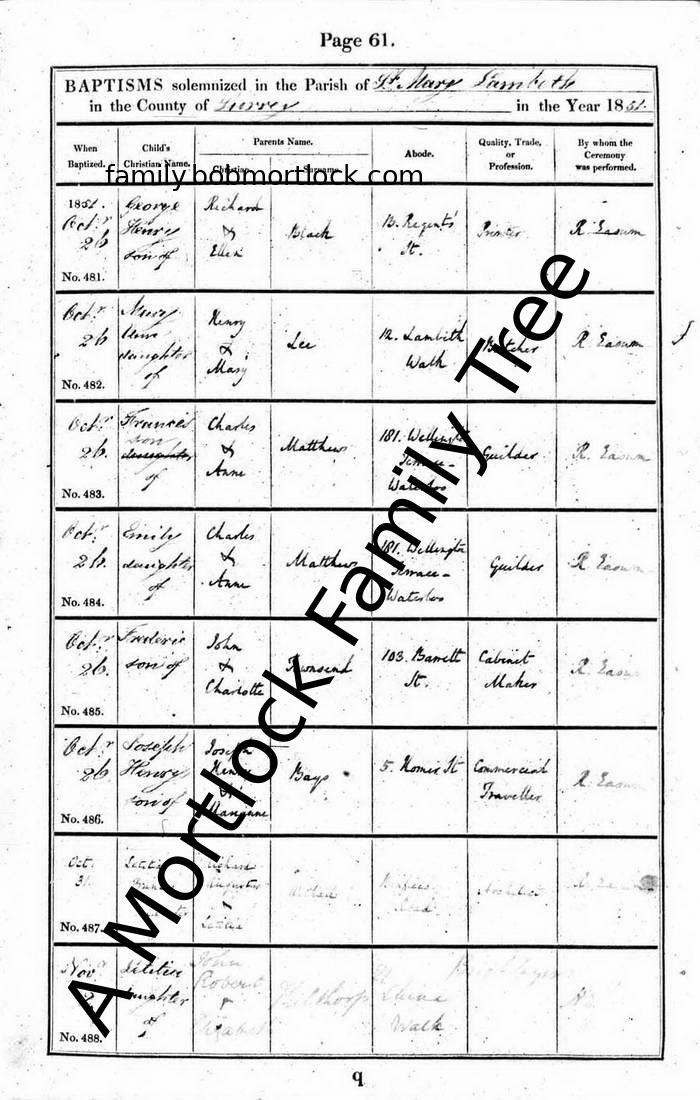 Page 61.
BAPTISMS solemnized in the Parish of St. Mary Lambeth
in the County of Surrey in the Year 1851.
When Baptized. Child's Christian Name. Parents Name. Abode. Quality, Trade, or Profession. By whom the Ceremony was performed.
Christian. Surname.
family.bobmortlock.com
1851. Octr 26 George Henry son of Richard & Ellen Black 13. Regents' St. Printer R Easum
No. 481.
Octr 26 Mary daughter of Henry & Mary Lee 12. Lambeth Walk Butcher R Easum
No. 482.
Octr 26 Francis son daughter of Charles & Anne Matthews 181. Wellington Terrace - Waterloo Guilder R. Easum
No. 483.
Octr 26. Emily daughter of Charles & Anne Matthews 181. Wellington Terrace - Waterloo Guilder R Easum
No. 484.
Octr 26. Frederic son of John & Charlotte Townsend 103. Barrett St. Cabinet Maker R Easum
No. 485.
Octr 26 Joseph Henry son of Joseph Henry & Marianne Bays 5. Homer St Commercial Traveller R Easum
No. 486.
Oct. 31. Letitia Augustus & Letitia Road Architect
No. 487.
Novr Letitia daughter of John Robert & Elizabeth China Walk Bricklayer
No. 488.
q
A Mortlock Family Tree